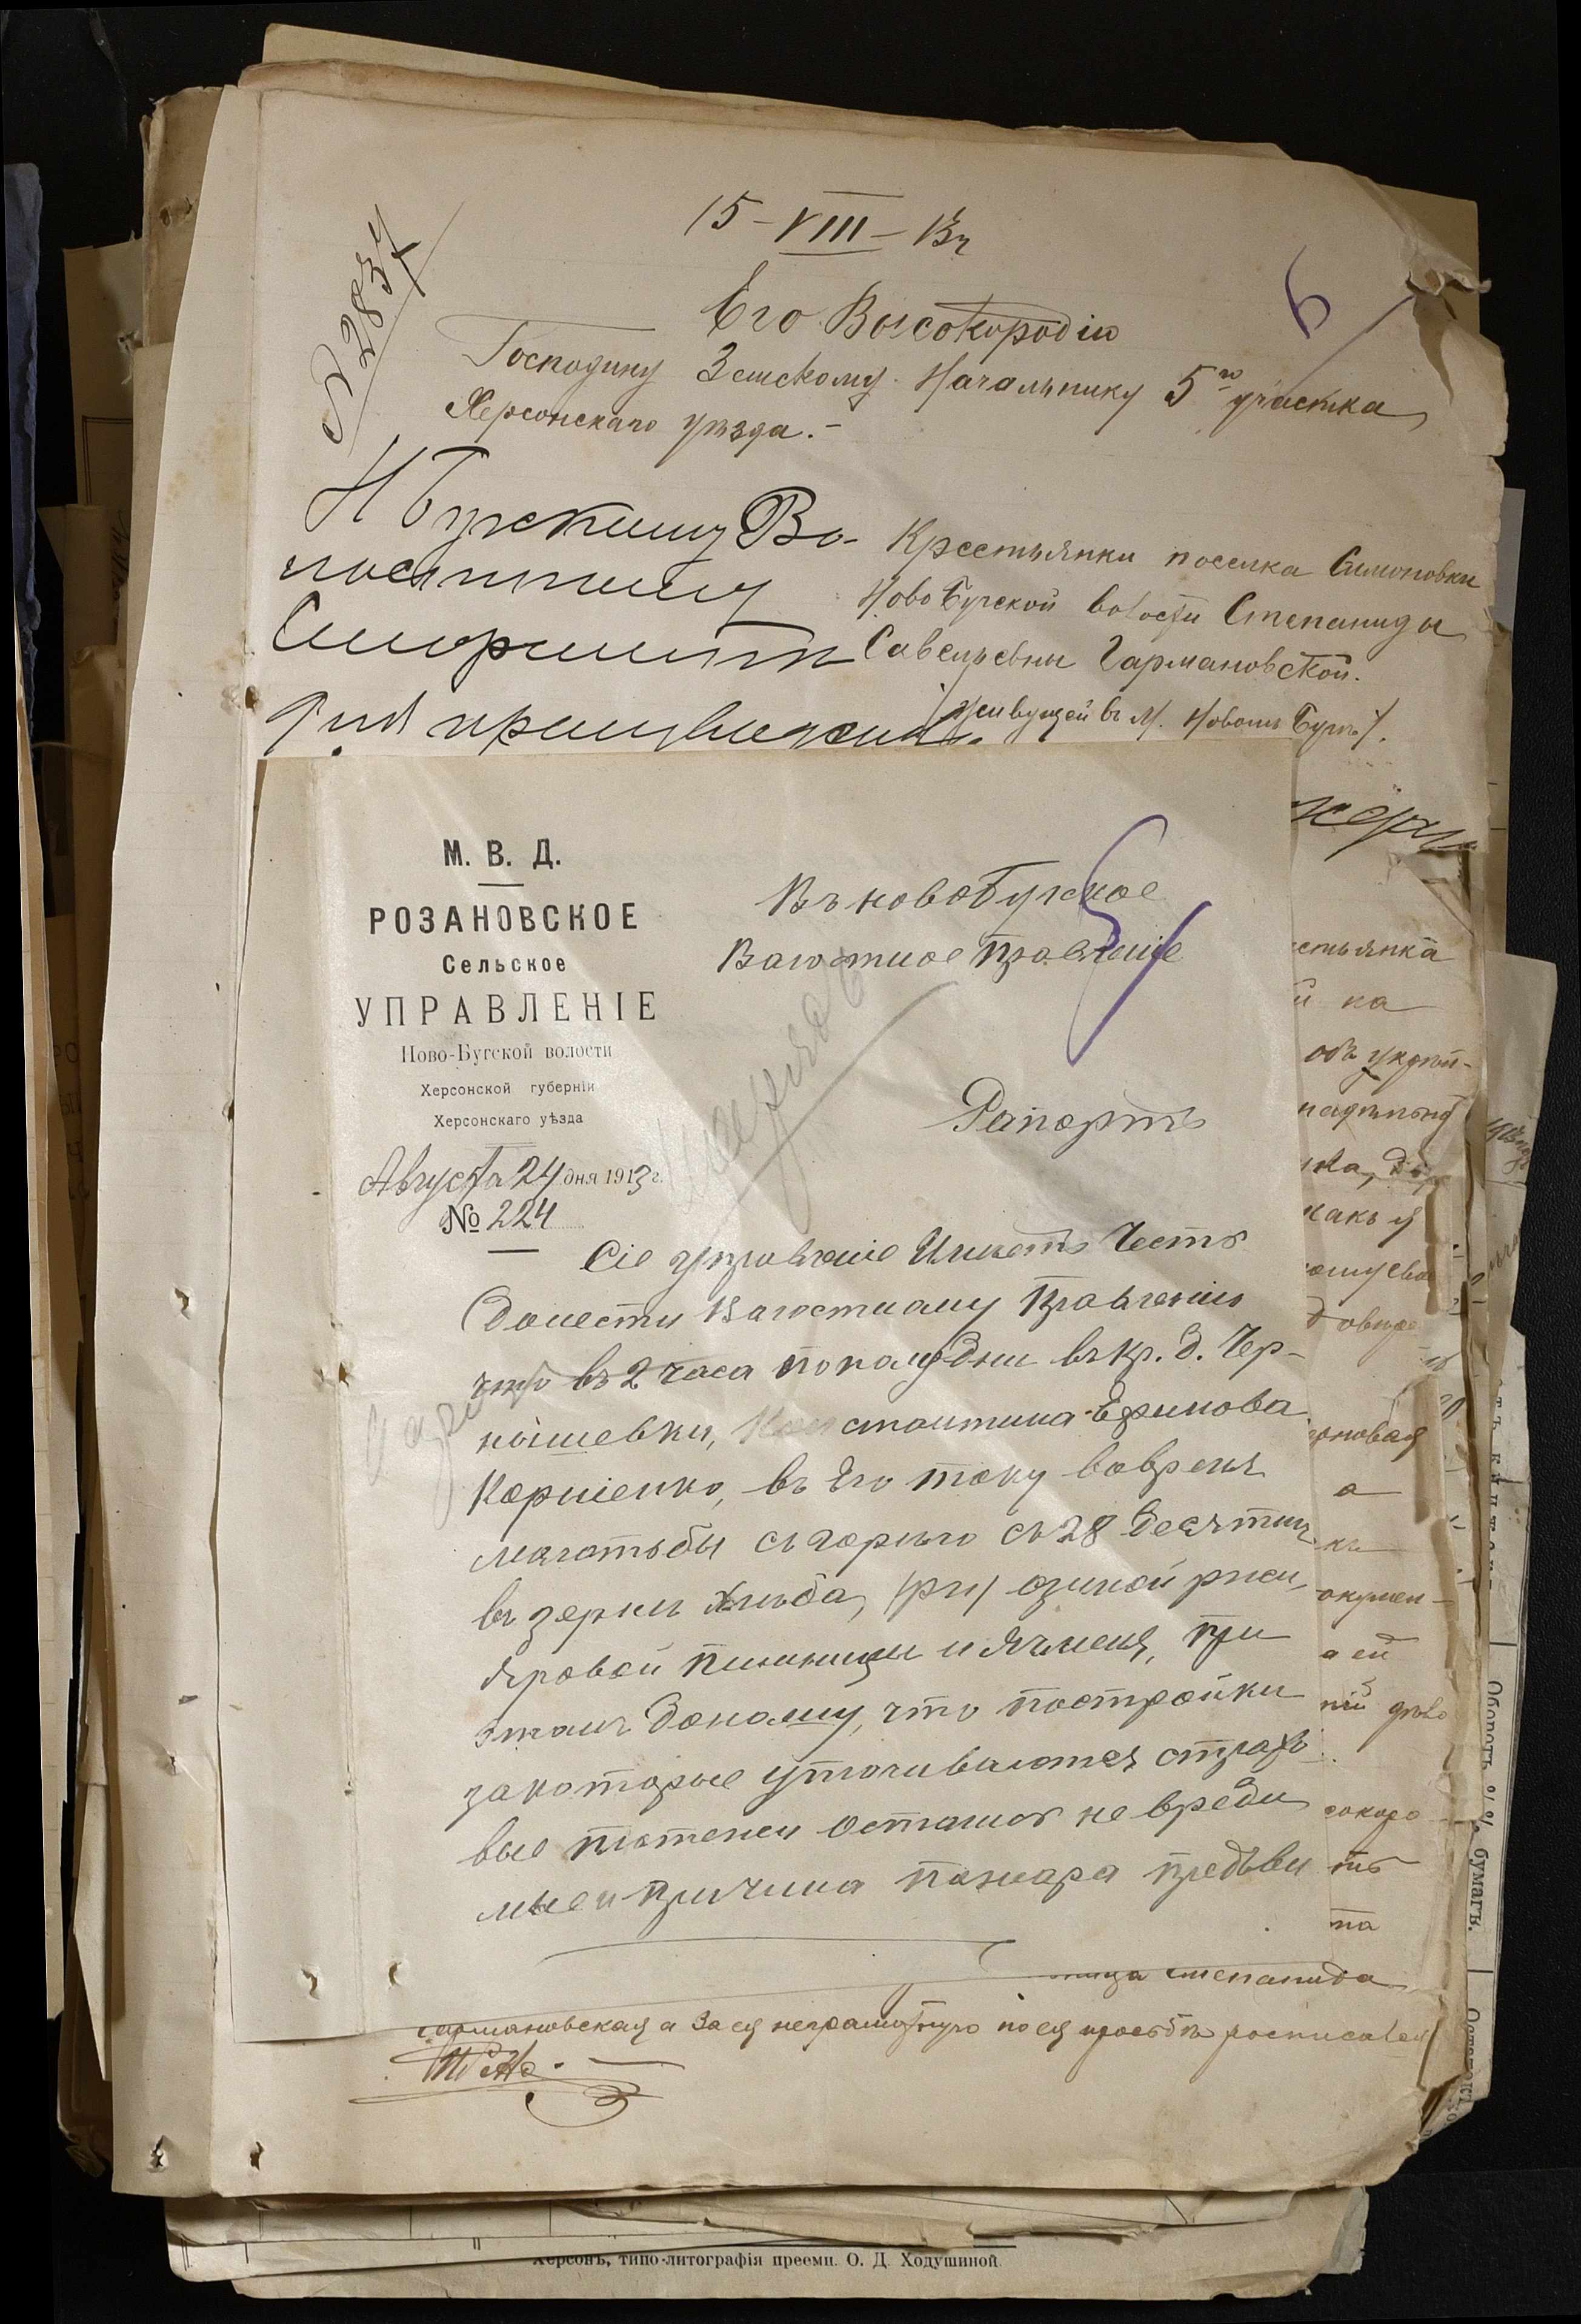 15-VIII-13 г
№ 2837
6
Его Высокородію
Господину Земскому Начальнику 5го участка
Херсонскаго уѣзда.-
Н Бугскому Во-
лостному
Старшинѣ
Крестьянки поселка Симоновки
Ново Бугской волости Степаниды
Савельевны Гармановской.
/живущей въ М. Новомъ Бугѣ/.
М. В. Д.
РОЗАНОВСКОЕ
Сельское
УПРАВЛЕНІЕ
Ново-Бугской волости
Херсонской губерніи
Херсонскаго уѣзда
Августа 24 дня 1913 г.
№ 224
5
Въ новоБугское
Валостное Правленіе
Рапортъ
Сіе управленіе Имѣетъ Честь
Донести Валостному Правленію
что въ 2 часа пополудни въ кр. д. Чер-
нышевки, Константина Ефимова
Корніенко, въ Его току вовремя
малотьбы сгорѣло съ 28 Десятин
въ зернѣ хлѣба, озимой ржи,
яровой пшеницы и Ячменя, при
этомъ Доношу, что постройки
закоторые уплачиваются страхо
вые платежи остались не вреди
мые и причина пожара предъви
стьянка
й на
объ укрѣп-
надѣльной
какъ я
довѣре
новая
а
къ
окумен-
а ей
ній
сокоро
ть
на
Степанида
Гармановская а За ея неграмотную по ея просьбѣ росписался
Оборотъ %% бумагъ.
Херсонъ, типо-литографія преемн. О. Д. Ходушиной.